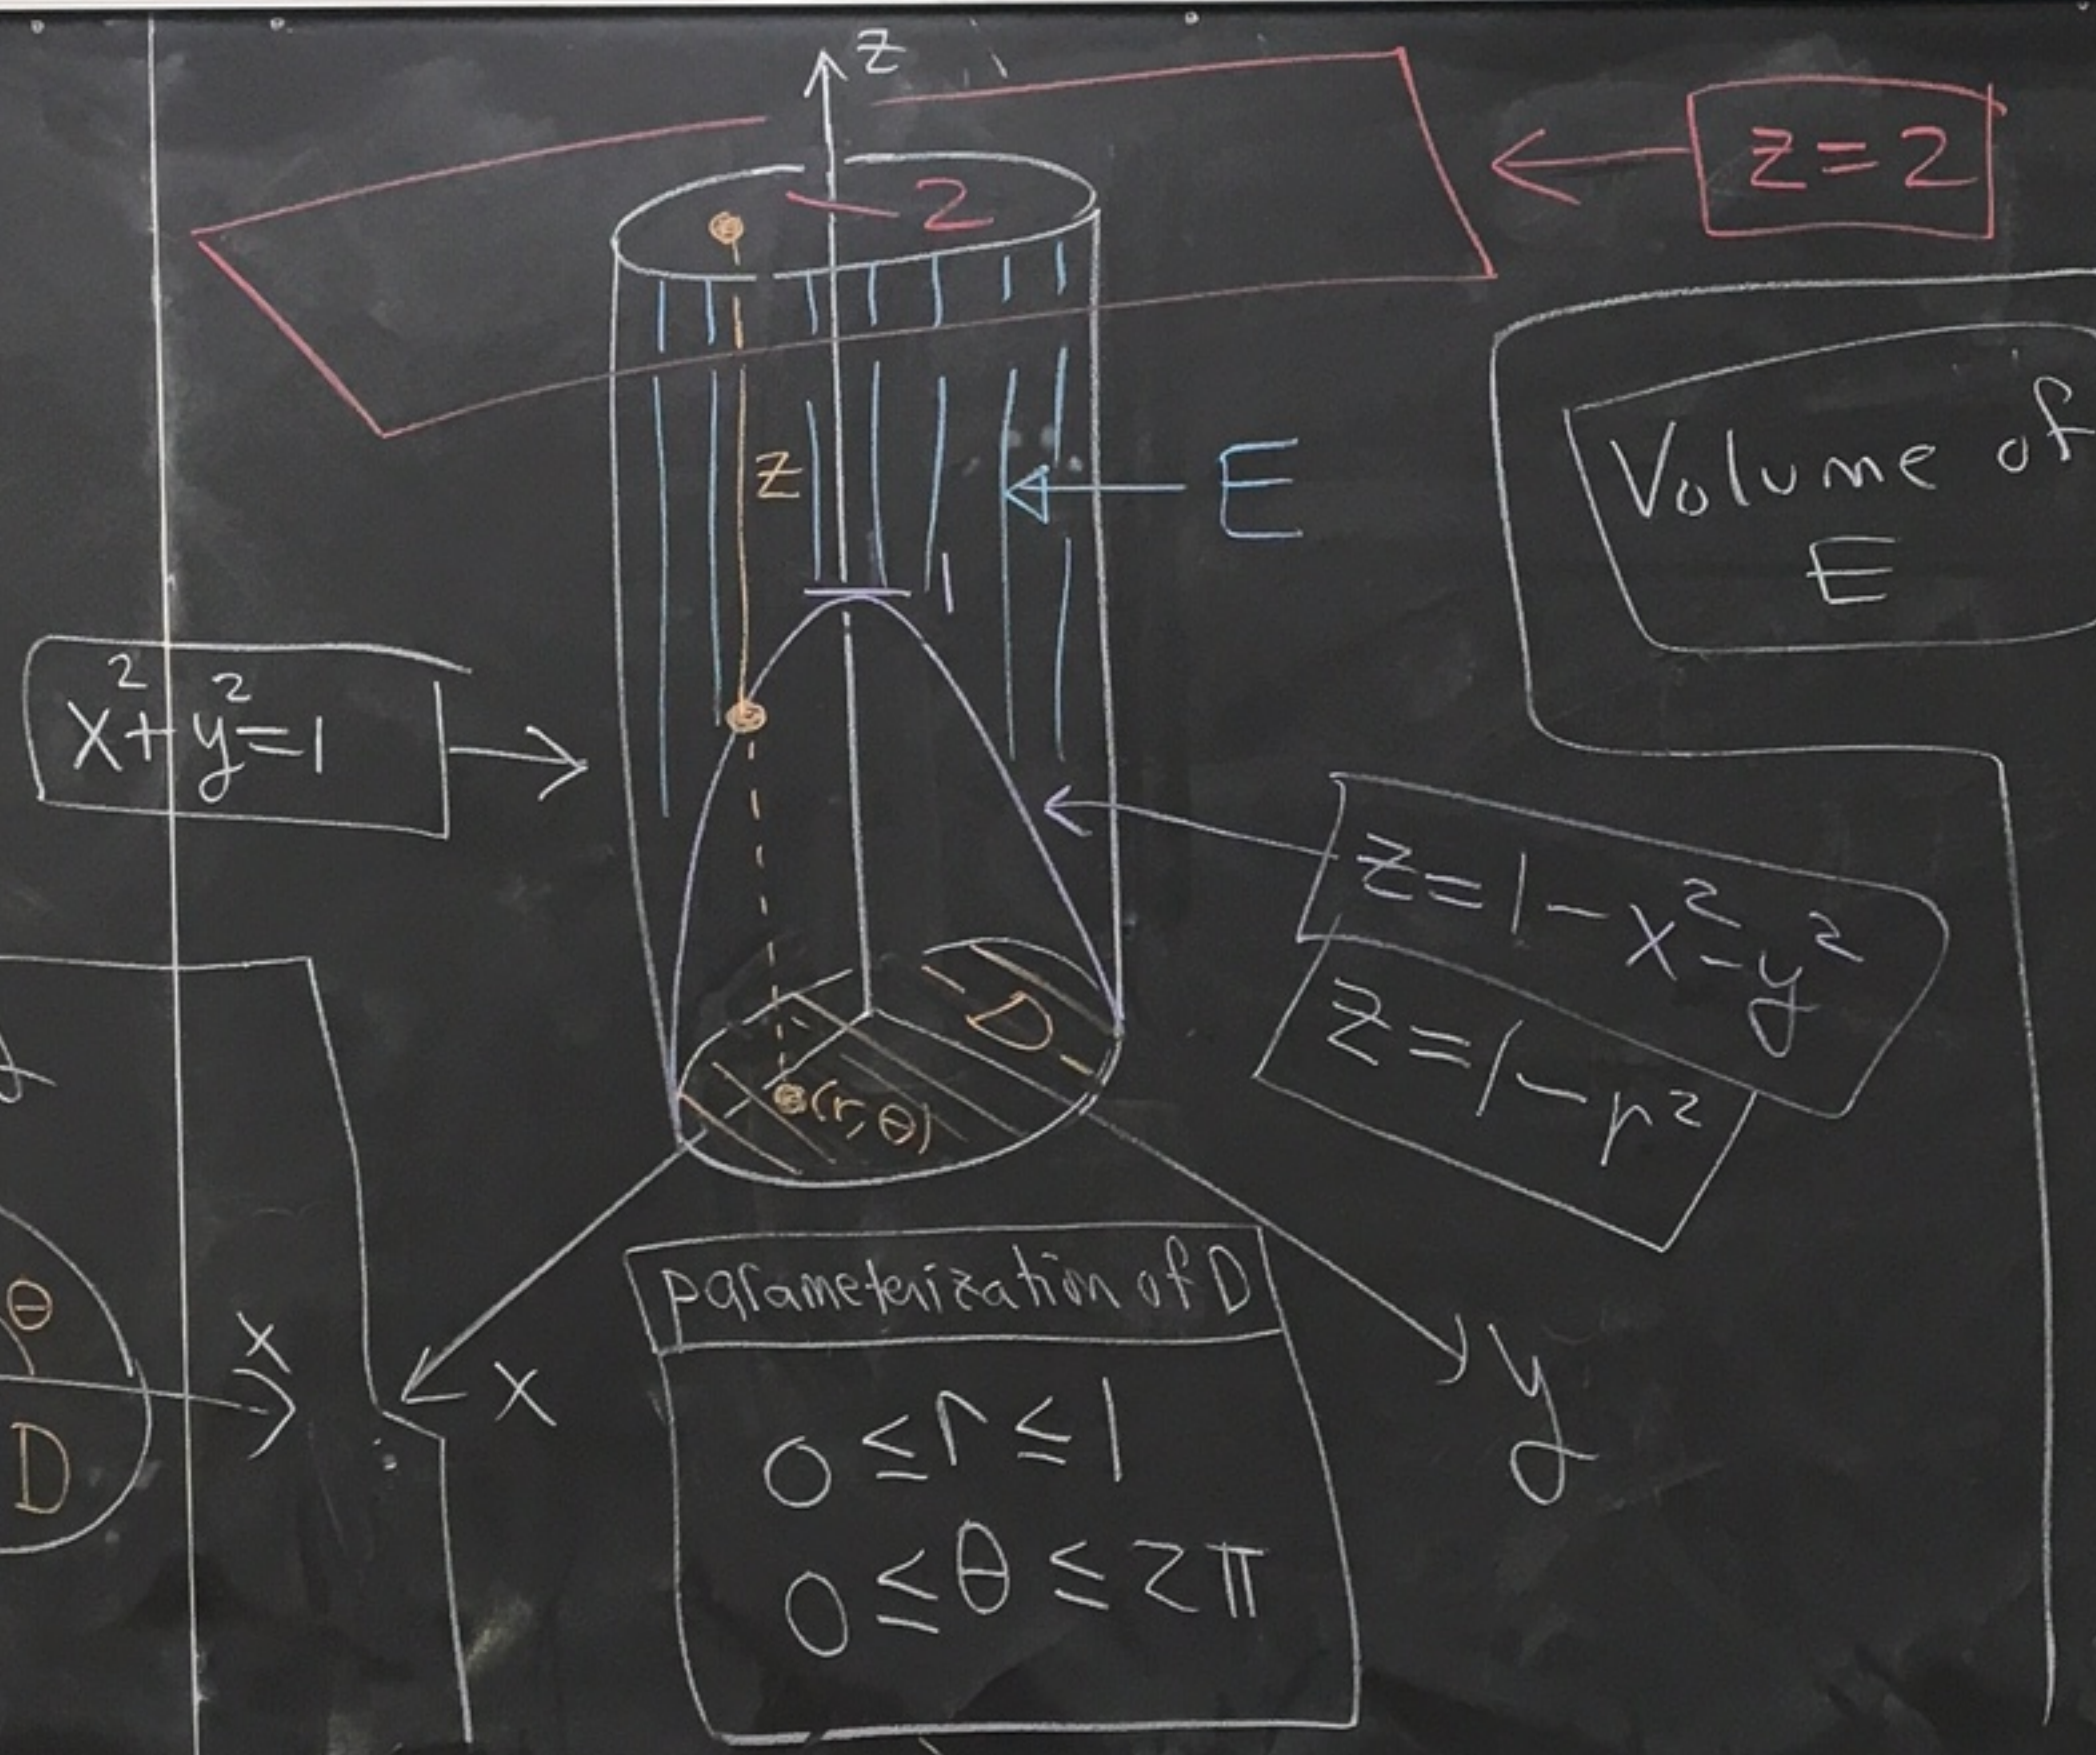 z
z=2
2
z
E
Volume of
E
1
x²+y²=1
z=1-x²-y²
z=1-r²
D
(r,θ)
parameterization of D
0≤r≤1
0≤θ≤2π
x
y
θ
x
D